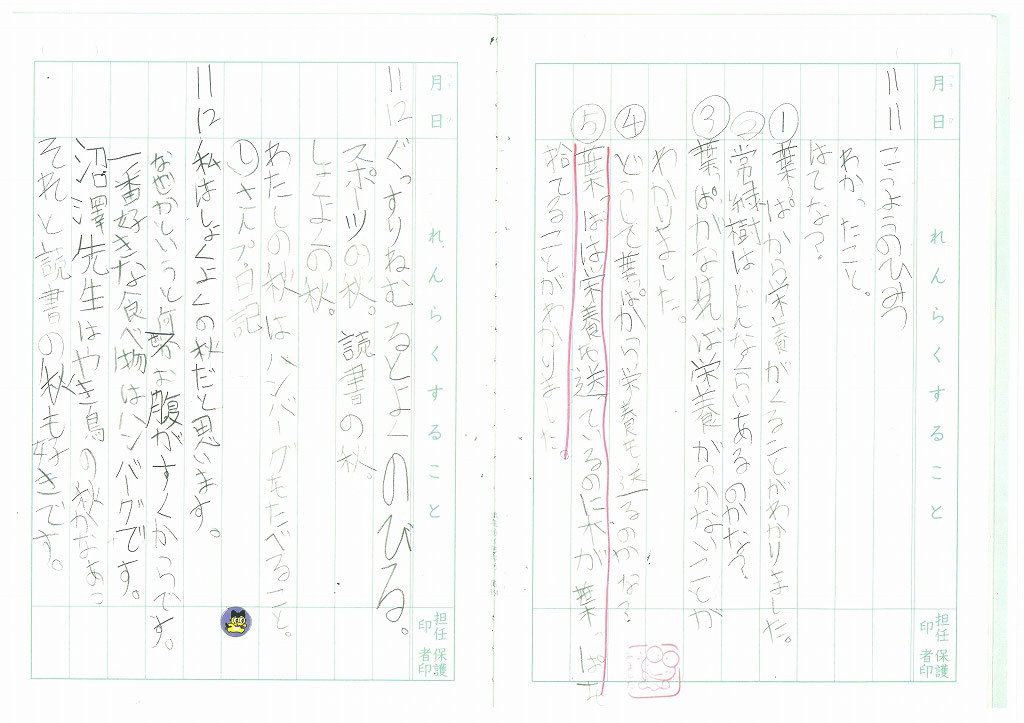 月 日
れんらくすること
担任印
保護者印
11 11 こうようのひみつ
わかったこと。
はてな?
①葉っぱから栄養がくることがわかりました。
②常緑樹はどんなくらいあるのかな?
③葉っぱがなければ栄養がつかないことが
わかりました。
④どうして葉っぱから栄養を送るのかな?
⑤葉っぱは栄養を送ているのに木が葉っぱを
捨てることがわかりました。
月 日
れんらくすること
担任印
保護者印
11 12 ぐっすりねむるとよくのびる。
スポーツの秋。読書の秋。
しょくよくの秋。
わたしの秋はハンバーグをたべること。
日記
11 12 私はしょくよくの秋だと思います。
なぜかというと何かお腹がすくからです。
一番好きな食べ物はハンバーグです。
沼澤先生はやき鳥の秋かなあ。
それと読書の秋も好きです。